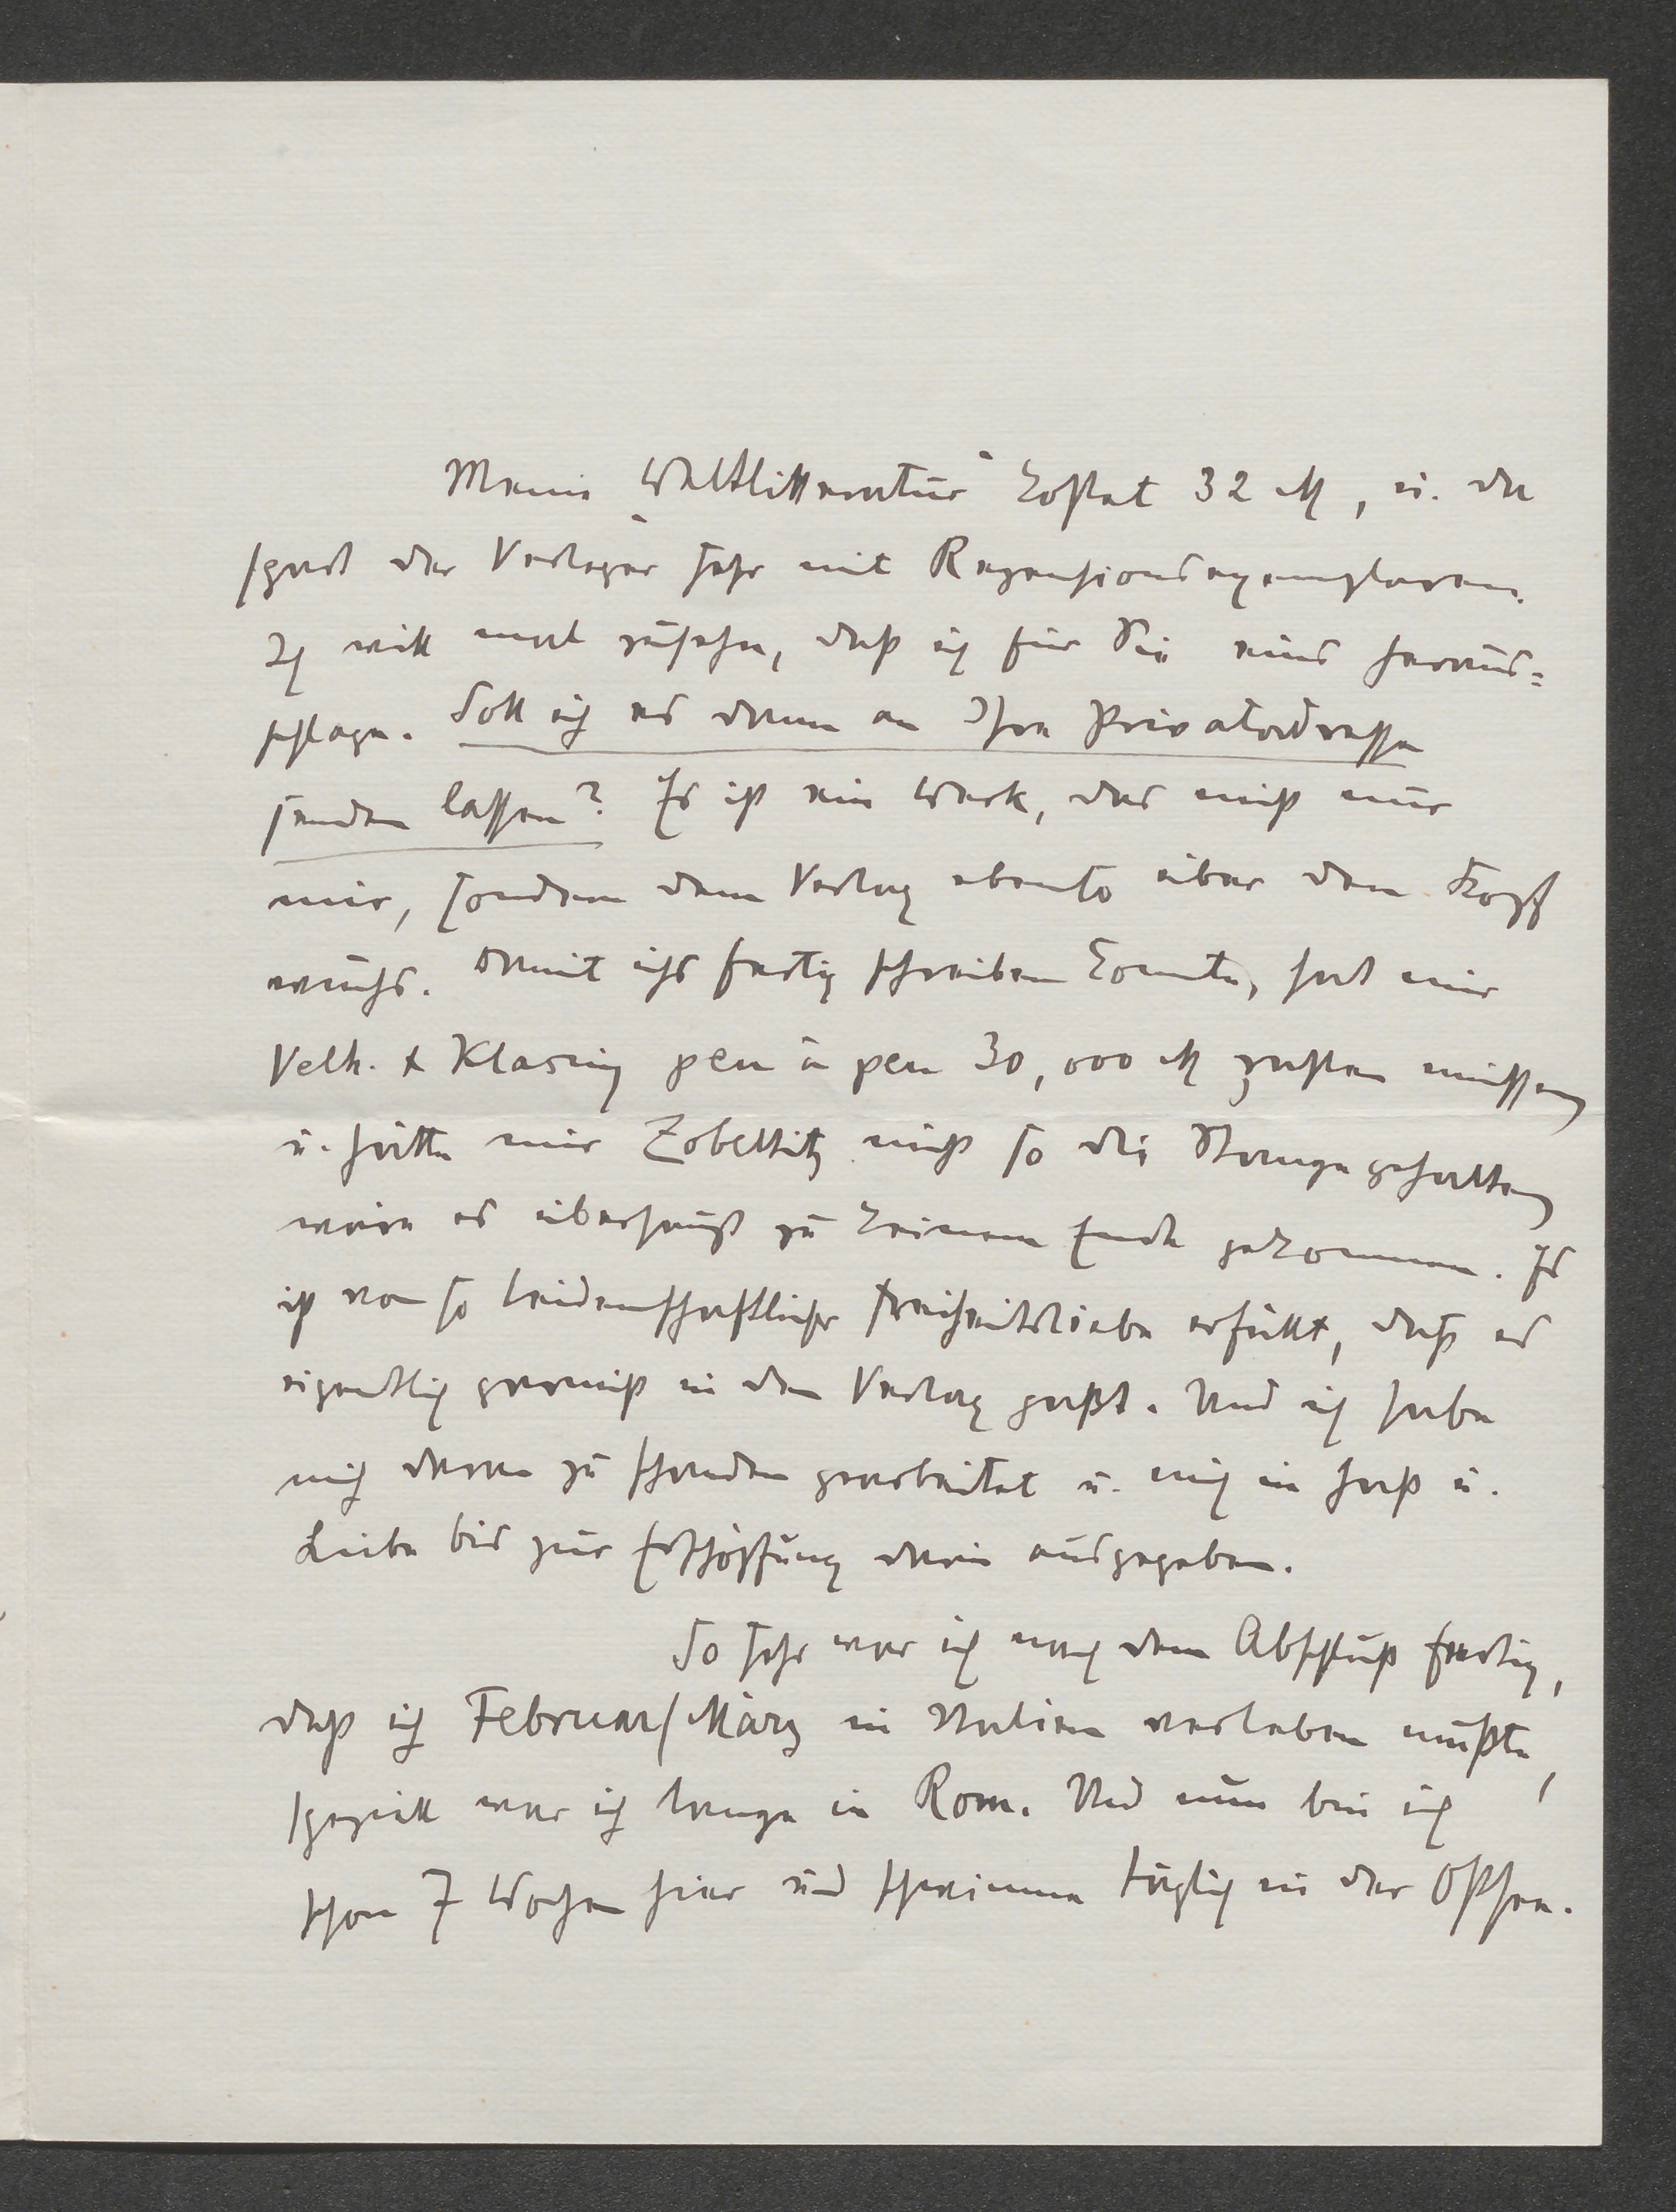 Meine "Weltlitteratur" kostet 32 M, u. da
spart der Verleger sehr mit Rezensionsexemplaren.
Ich will mal zusehn, daß ich für Sie eins heraus=
schlage. Soll ich es dann an Ihre Privatadresse
senden lassen? Es ist ein Werk, das nicht nur
mir, sondern dem Verlag ebenso über den Kopf
wuchs. Damit ichs fertig schreiben konnte, hat mir
Velh. & Klasing peu à peu 30,000 M zahlen müssen,
u. hätte mir Zobeltitz nicht so die Stange gehalten,
wäre es überhaupt zu keinem Ende gekommen. Es
ist von so leidenschaftlicher Freiheitsliebe erfüllt, daß es
eigentlich garnicht in den Verlag paßt. Und ich habe
mich daran zu schanden gearbeitet u. mich in Haß u.
Liebe bis zur Erschöpfung darin ausgegeben.
So sehr war ich nach dem Abschluß fertig,
daß ich Februar/März in Italien verleben mußte,
speziell war ich lange in Rom. Und nun bin ich
schon 7 Wochen hier und schwimme täglich in der Ostsee.